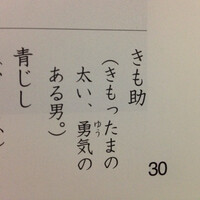 きも助
(きもったまの
太い、勇気の
ゆう
ある男。)
青じし
30